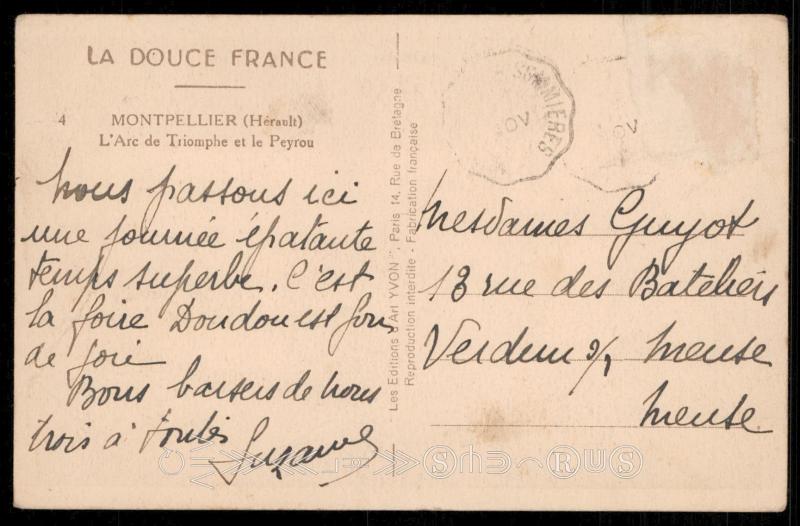 LA DOUCE FRANCE
4 MONTPELLIER (Hérault)
L'Arc de Triomphe et le Peyrou
Nous passons ici
une journée épatante
temps superbe. C'est
la foire Doudou est fou
de joie
Bons baisers de nous
trois à toutes
Suzanne
Les Editions d'Art "YVON", Paris 14, Rue de Bretagne
Reproduction interdite - Fabrication française
MIERES
OV
OV
Mesdames Guyot
13 rue des Bateliers
Verdun s/ Meuse
Meuse